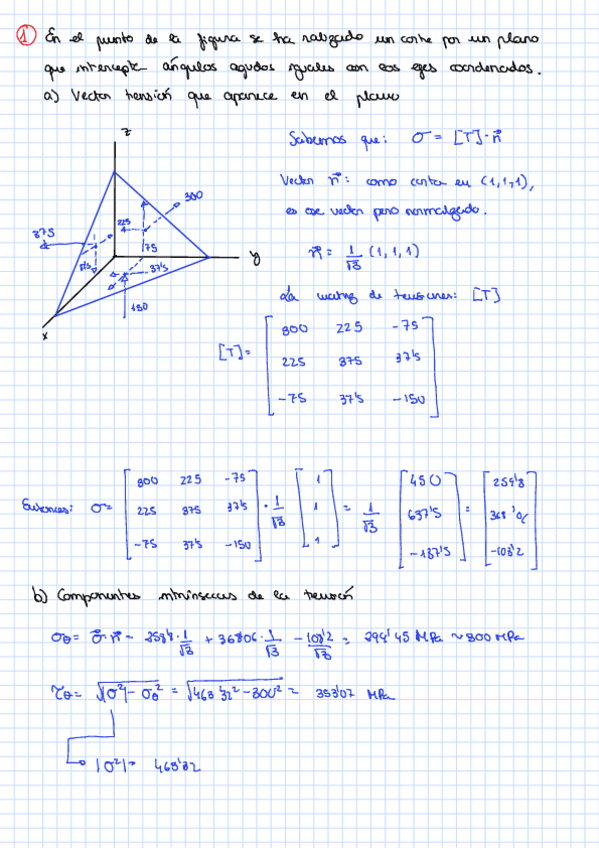 ① En el punto de la figura se ha realizado un corte por un plano
que intercepta ángulos agudos iguales con los ejes coordenados.
a) Vector tensión que aparece en el plano
z
Sabemos que: σ = [T]·n⃗
Vector n⃗: como corta en (1,1,1),
es ese vector pero normalizado.
300
225
375
75
y
37'5
n⃗ = 1/√3 (1, 1, 1)
150
x
La matriz de tensiones: [T]
[T] = [300 225 -75
225 375 37'5
-75 37'5 -150]
Entonces: σ = [300 225 -75; 225 375 37'5; -75 37'5 -150] · 1/√3 [1; 1; 1] = 1/√3 [450; 637'5; -187'5] = [259'8; 368'06; -108'2]
b) Componentes intrínsecas de la tensión
σθ = σ⃗·n⃗ = 259'8·1/√3 + 368'06·1/√3 - 108'2/√3 = 299'45 MPa ~ 300 MPa
τθ = √|σ²| - σθ² = √463'32² - 300² = 353'07 MPa
|σ²| = 463'32